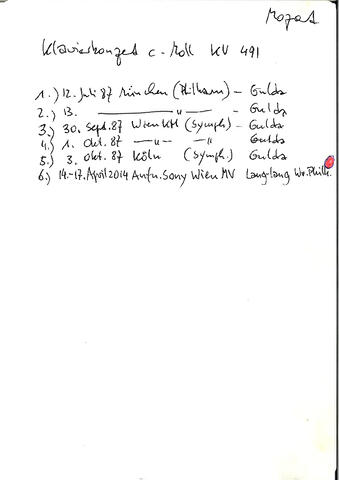 Mozart
Klavierkonzert c-Moll KV 491
1.) 12. Juli 87 München (Philharm) - Gulda
2.) 13. ——— " ——— - Gulda
3.) 30. Sept. 87 Wien KH (Symph) - Gulda
4.) 1. Okt. 87 —"— —"— Gulda
5.) 3. Okt. 87 Köln (Symph.) Gulda
6.) 14.-17. April 2014 Aufn. Sony Wien MV Lang-Lang Wr. Philh.